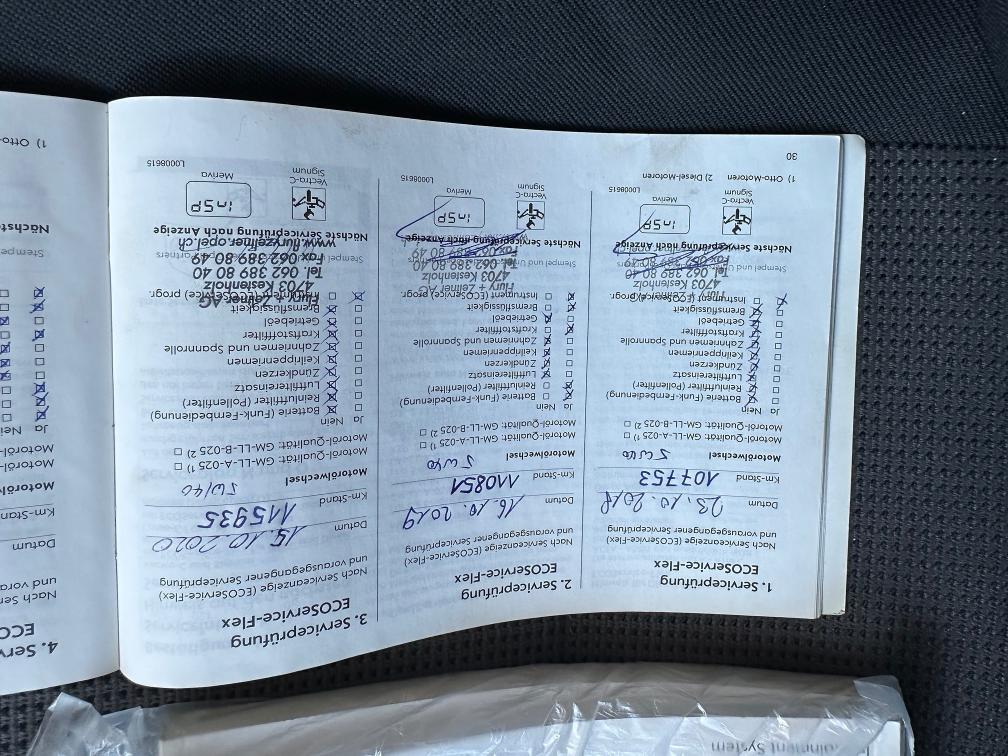 1. Serviceprüfung
ECOService-Flex
Nach Serviceanzeige (ECOService-Flex)
und vorausgegangener Serviceprüfung
Datum 23.10.2018
Km-Stand 107753
Motorölwechsel 5W40
Motoröl-Qualität: GM-LL-A-025 1) □
Motoröl-Qualität: GM-LL-B-025 2) □
Ja Nein
Batterie (Funk-Fernbedienung)
Reinluftfilter (Pollenfilter)
Luftfiltereinsatz
Zündkerzen
Keilrippenriemen
Zahnriemen und Spannrolle
Kraftstoffilter
Getriebeöl
Bremsflüssigkeit
Instrument (ECOService) progr.
Flury + Zellner AG
4703 Kestenholz
Tel. 062 389 80 40
Nächste Serviceprüfung nach Anzeige
Vectra-C
Signum
inSP
Meriva
L0008615
1) Otto-Motoren 2) Diesel-Motoren
30
2. Serviceprüfung
ECOService-Flex
Nach Serviceanzeige (ECOService-Flex)
und vorausgegangener Serviceprüfung
Datum 16.10.2019
Km-Stand 110851
Motorölwechsel 5W40
Motoröl-Qualität: GM-LL-A-025 1) □
Motoröl-Qualität: GM-LL-B-025 2) □
Ja Nein
Batterie (Funk-Fernbedienung)
Reinluftfilter (Pollenfilter)
Luftfiltereinsatz
Zündkerzen
Keilrippenriemen
Zahnriemen und Spannrolle
Kraftstoffilter
Getriebeöl
Bremsflüssigkeit
Instrument (ECOService) progr.
Flury + Zellner AG
4703 Kestenholz
Tel. 062 389 80 40
Fax 062 389 80 49
Nächste Serviceprüfung nach Anzeige
Vectra-C
Signum
inSP
Meriva
L0008615
3. Serviceprüfung
ECOService-Flex
Nach Serviceanzeige (ECOService-Flex)
und vorausgegangener Serviceprüfung
Datum 15.10.2020
Km-Stand 115935
Motorölwechsel 5W/40
Motoröl-Qualität: GM-LL-A-025 1) □
Motoröl-Qualität: GM-LL-B-025 2) □
Ja Nein
Batterie (Funk-Fernbedienung)
Reinluftfilter (Pollenfilter)
Luftfiltereinsatz
Zündkerzen
Keilrippenriemen
Zahnriemen und Spannrolle
Kraftstoffilter
Getriebeöl
Bremsflüssigkeit
Instrument (ECOService) progr.
Flury + Zellner AG
4703 Kestenholz
Tel. 062 389 80 40
Fax 062 389 80 49
www.fluryzellner.opel.ch
Nächste Serviceprüfung nach Anzeige
Vectra-C
Signum
inSP
Meriva
L0008615
4. Serv
ECO
Nach Ser
und vora
Datum
Km-Stan
Motorölw
Motoröl-
Motoröl-
Ja Nein
Stempe
Nächste
1) Otto-
ainment System